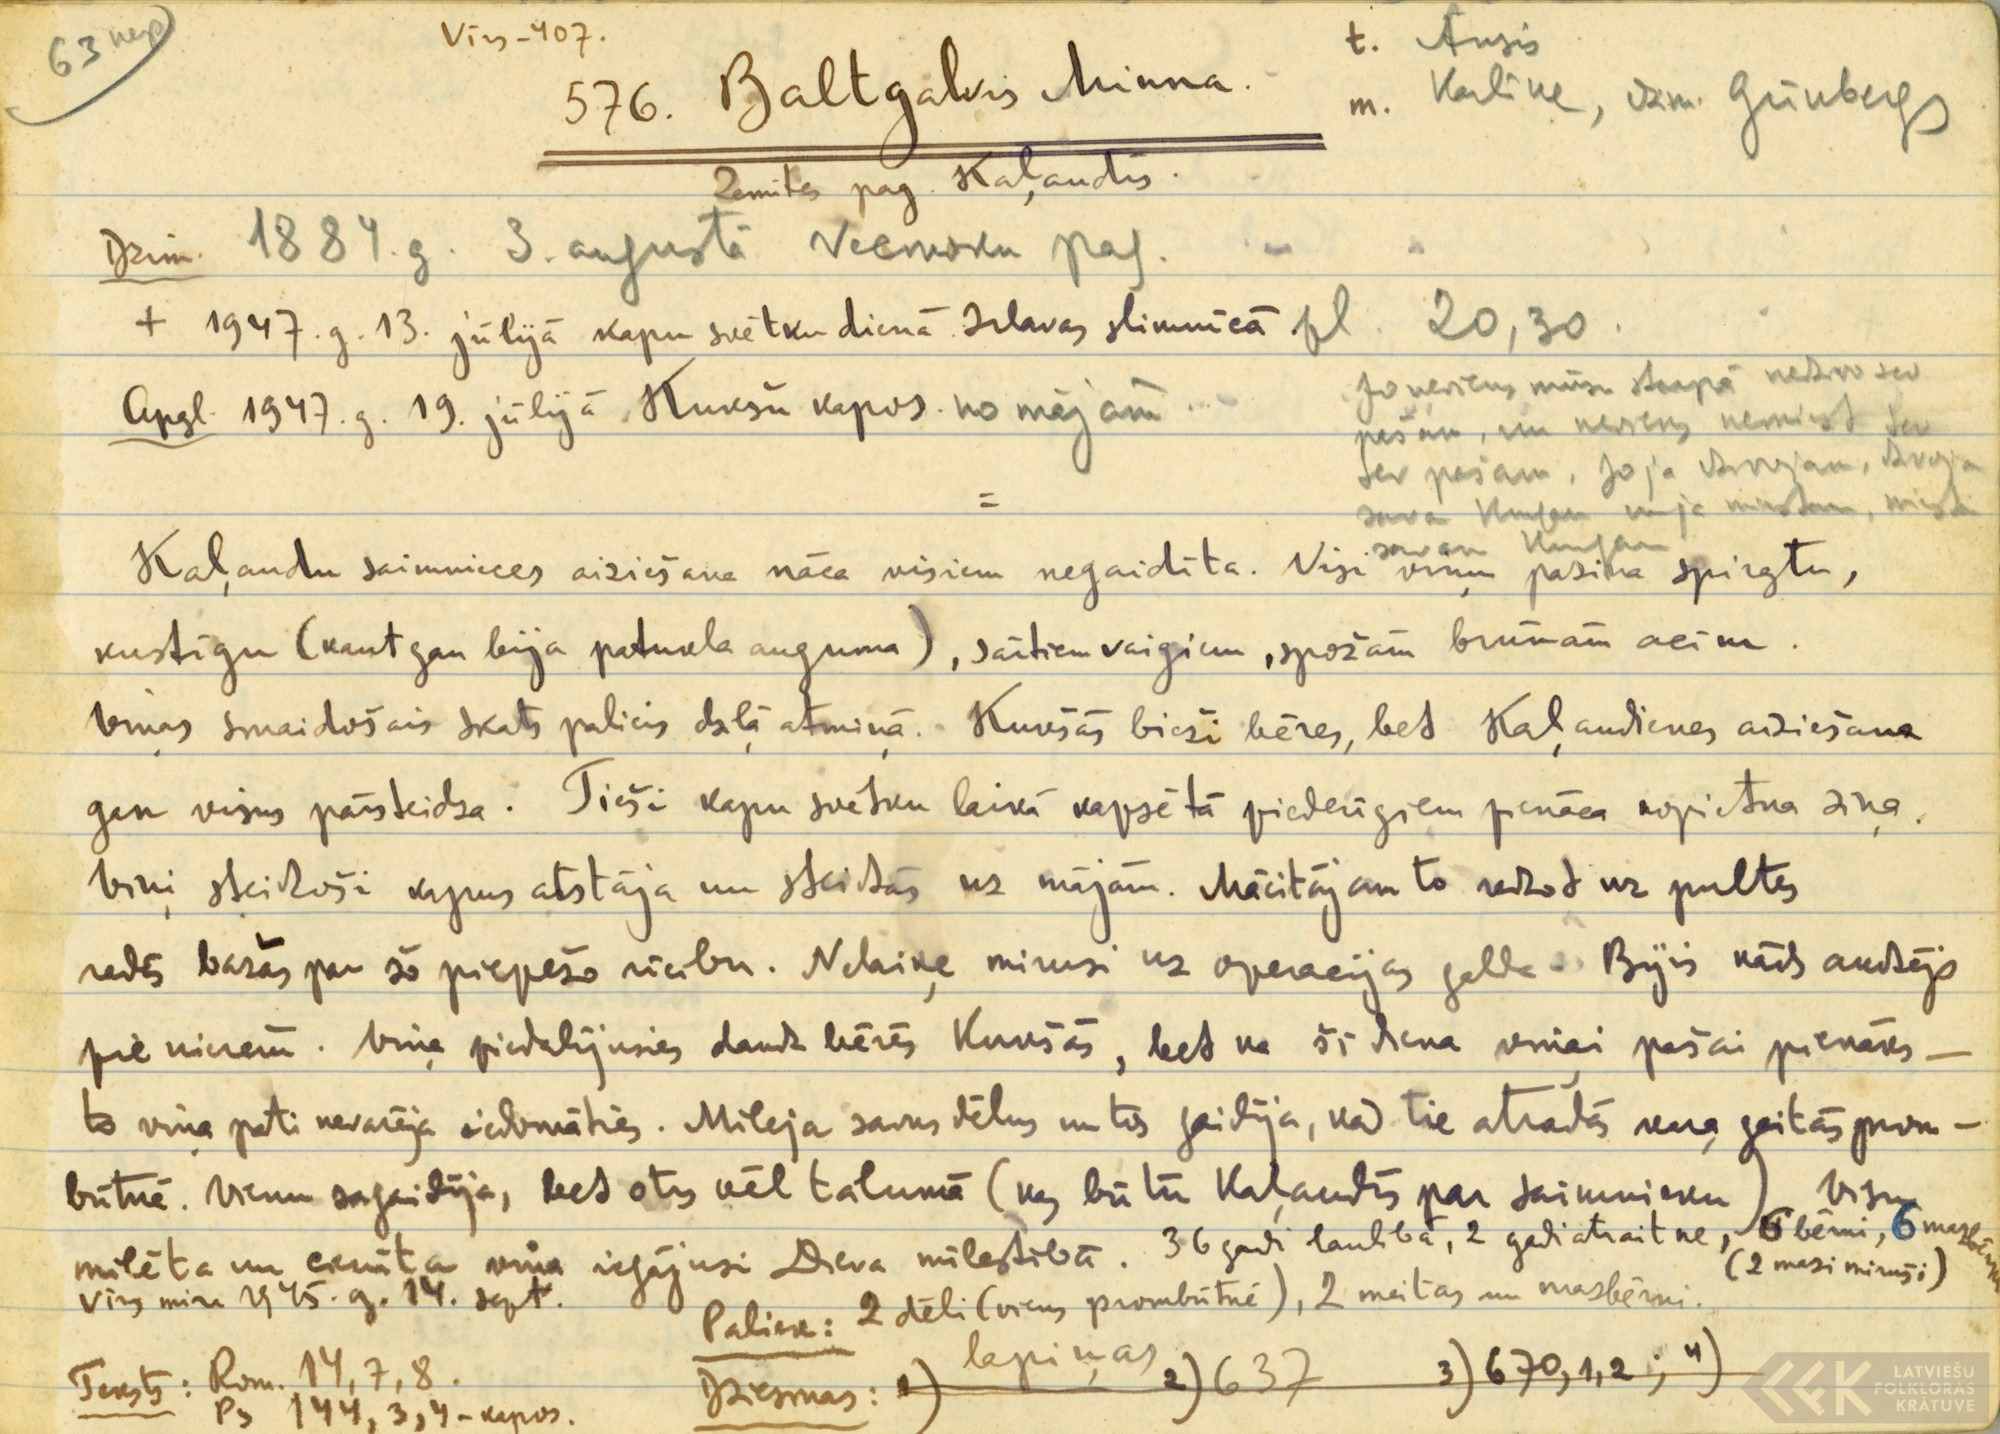 63
Vīrs - 407.
576. Baltgalvis Minna.
t. Ansis
m. Karlīne, dzim. Grīnbergs
Zemites pag. Kaļandis.
Dzim. 1884. g. 3. augustā Vecmoku pag.
+ 1947. g. 13. jūlijā kapu svētku dienā Irlavas slimnīcā pl. 20,30.
Apgl. 1947. g. 19. jūlijā Kukšu kapos. no mājām
Jo neviens mūsu starpā nedzīvo sev
pašam, un neviens nemirst sev
sev pašam, Jo ja dzīvojam, dzīvoja
savam Kungam un ja mirstam, mirst
savam Kungam
=
Kaļandu saimnieces aiziešana nāca visiem negaidīta. Visi viņu pazina spirgtu,
kustīgu (kaut gan bija patukla auguma), sārtiem vaigiem, spožām brūnām acīm.
Viņas smaidošais skats palicis dziļā atmiņā. Kukšās bieži bēres, bet Kaļandienes aiziešana
gan visus pārsteidza. Tieši kapu svētku laikā kapsētā piederīgiem pienāca nopietna ziņa.
Viņi steidzoši kapus atstāja un steidzās uz mājām. Mācītājam to redzot uz pultes
radās bažas par šo piepešo rīcību. Nelaiķe mirusi uz operācijas galda. Bijis kāds audzējs
pie nierēm. Viņa piedalījusies daudz bērēs Kukšās, bet ka šī diena viņai pašai pienāks —
to viņa pati nevarēja iedomāties. Mīlēja savus dēlus un tos gaidīja, kad tie atradās kara gaitās prom-
būtnē. Vienu sagaidīja, bet otrs vēl tālumā (kas būtu Kaļandīs par saimnieku) Visu
mīlēta un cienīta viņa iegājusi Dieva mīlestībā. 36 gadi laulībā, 2 gadi atraitne, 6 bērni, 6 mazbērni
(2 mazi miruši)
Vīrs miris 1945. g. 14. sept.
Paliek: 2 dēli (viens prombūtnē), 2 meitas un mazbērni.
Teksts: Rom. 14, 7, 8.
Ps 144, 3, 4 - kapos.
Dziesmas: 1) lapiņas 2) 637 3) 670, 1, 2; 4)
LATVIEŠU
FOLKLORAS
KRĀTUVE